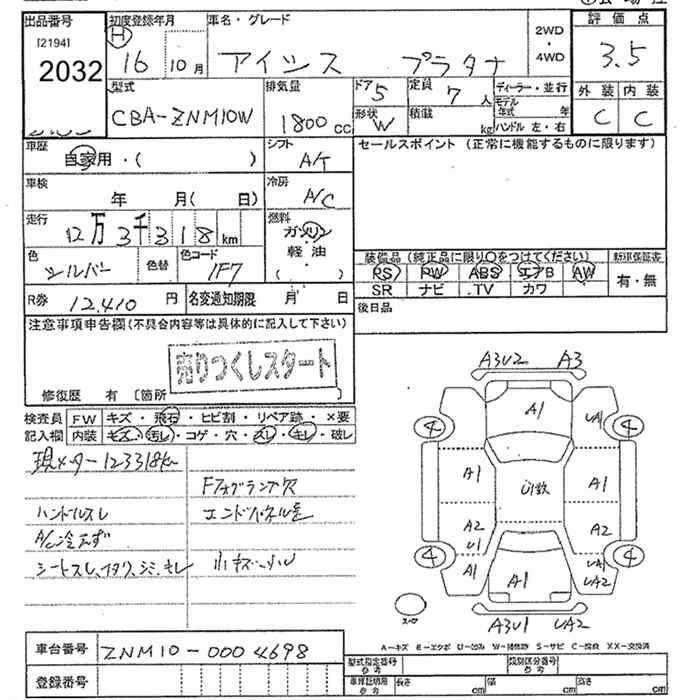 出品番号 初度登録年月 車名・グレード 2WD ・ 4WD 評価点
[2194] 2032 H 16 10月 アイシス プラタナ 3.5
型式 排気量 ドア 5 定員 7人 ディーラー・並行 外装 内装
CBA-ZNM10W 1800cc 形状 W 積載 kg モデル年式 年 ハンドル 左・右 C C
車歴 自家用・( ) シフト A/T セールスポイント (正常に機能するものに限ります)
車検 年 月( 日) 冷房 A/C
走行 12万3千318km 燃料 ガソリン
軽油
( )
色 シルバー 色替 色コード 1F7 装備品 (純正品に限り○をつけてください) 新車保証書
PS PW ABS エアB AW 有・無
SR ナビ TV カワ
R券 12,410円 名変通知期限 月 日 後日品
注意事項申告欄(不具合内容等は具体的に記入して下さい)
売りつくしスタート
修復歴 有 〔箇所 〕
検査員記入欄 FW キズ・飛石・ヒビ割・リペア跡・×要
内装 キズ・汚レ・コゲ・穴・スレ・キレ・破レ
現メーター123318km
Fフォグランプ欠
ハンドルスレ エンドパネル歪
A/C冷えず
シートスレ、ヘタリ、シミ、キレ 小キズ・小凹
A3U2 A3
A1 UA1
4 4
A1 U1数 A1
A2 U1 A2
4 4
A1 A1 UA1 UA2
A3U1 UA2
スペア
A-キズ E-エクボ U-凹み W-補修跡 S-サビ C-腐食 XX-交換済
車台番号 ZNM10-0004698
型式指定番号 参考 類別区分番号 参考
登録番号 車庫証明用 参考 長さ cm 幅 cm 高さ cm